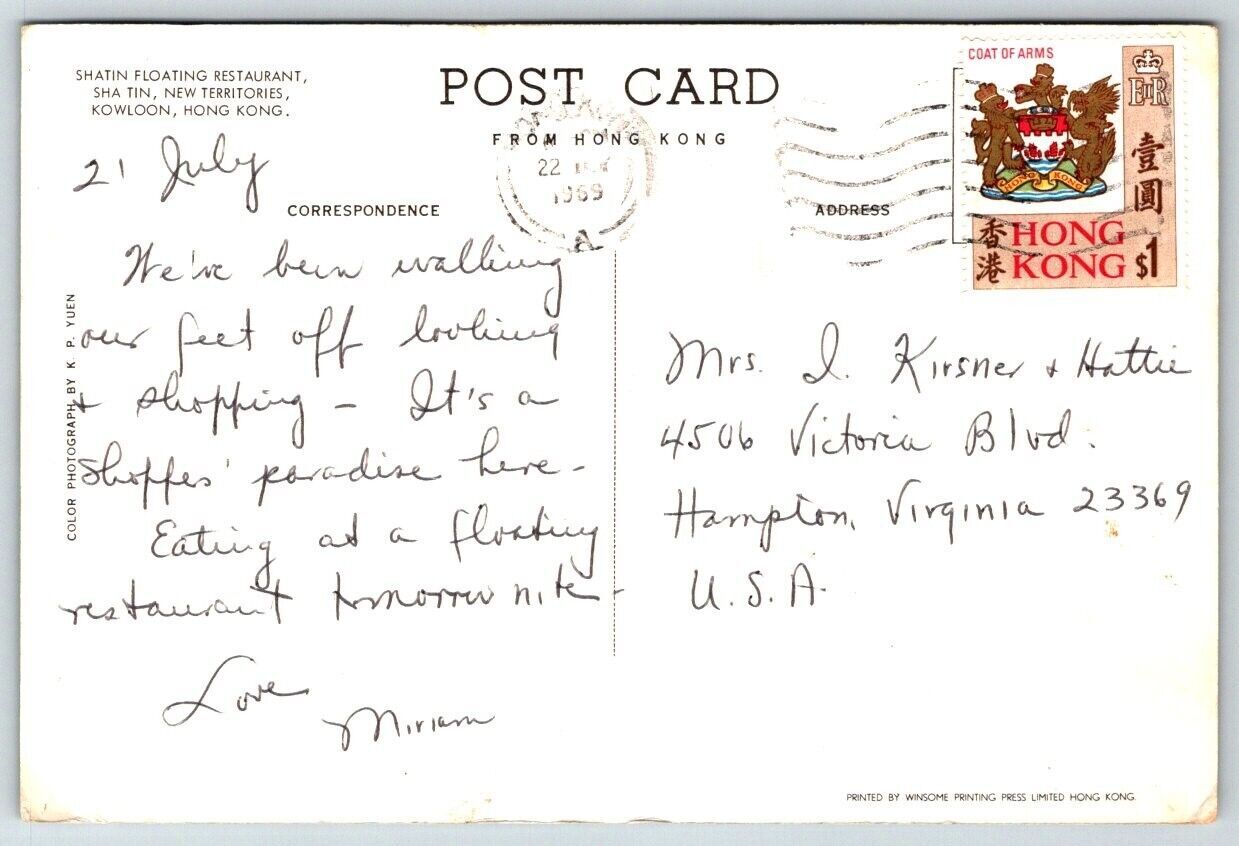 SHATIN FLOATING RESTAURANT,
SHA TIN, NEW TERRITORIES,
KOWLOON, HONG KONG.
POST CARD
FROM HONG KONG
22
1969
A
COAT OF ARMS
E II R
HONG KONG
壹圓
香港
HONG
KONG
$1
21 July
CORRESPONDENCE
ADDRESS
We've been walking
our feet off looking
+ shopping - It's a
shoppes' paradise here -
Eating at a floating
restaurant tomorrow nite -
Love
Miriam
COLOR PHOTOGRAPH BY K. P. YUEN
Mrs. I. Kirsner + Hattie
4506 Victoria Blvd.
Hampton, Virginia 23369
U.S.A.
PRINTED BY WINSOME PRINTING PRESS LIMITED HONG KONG.